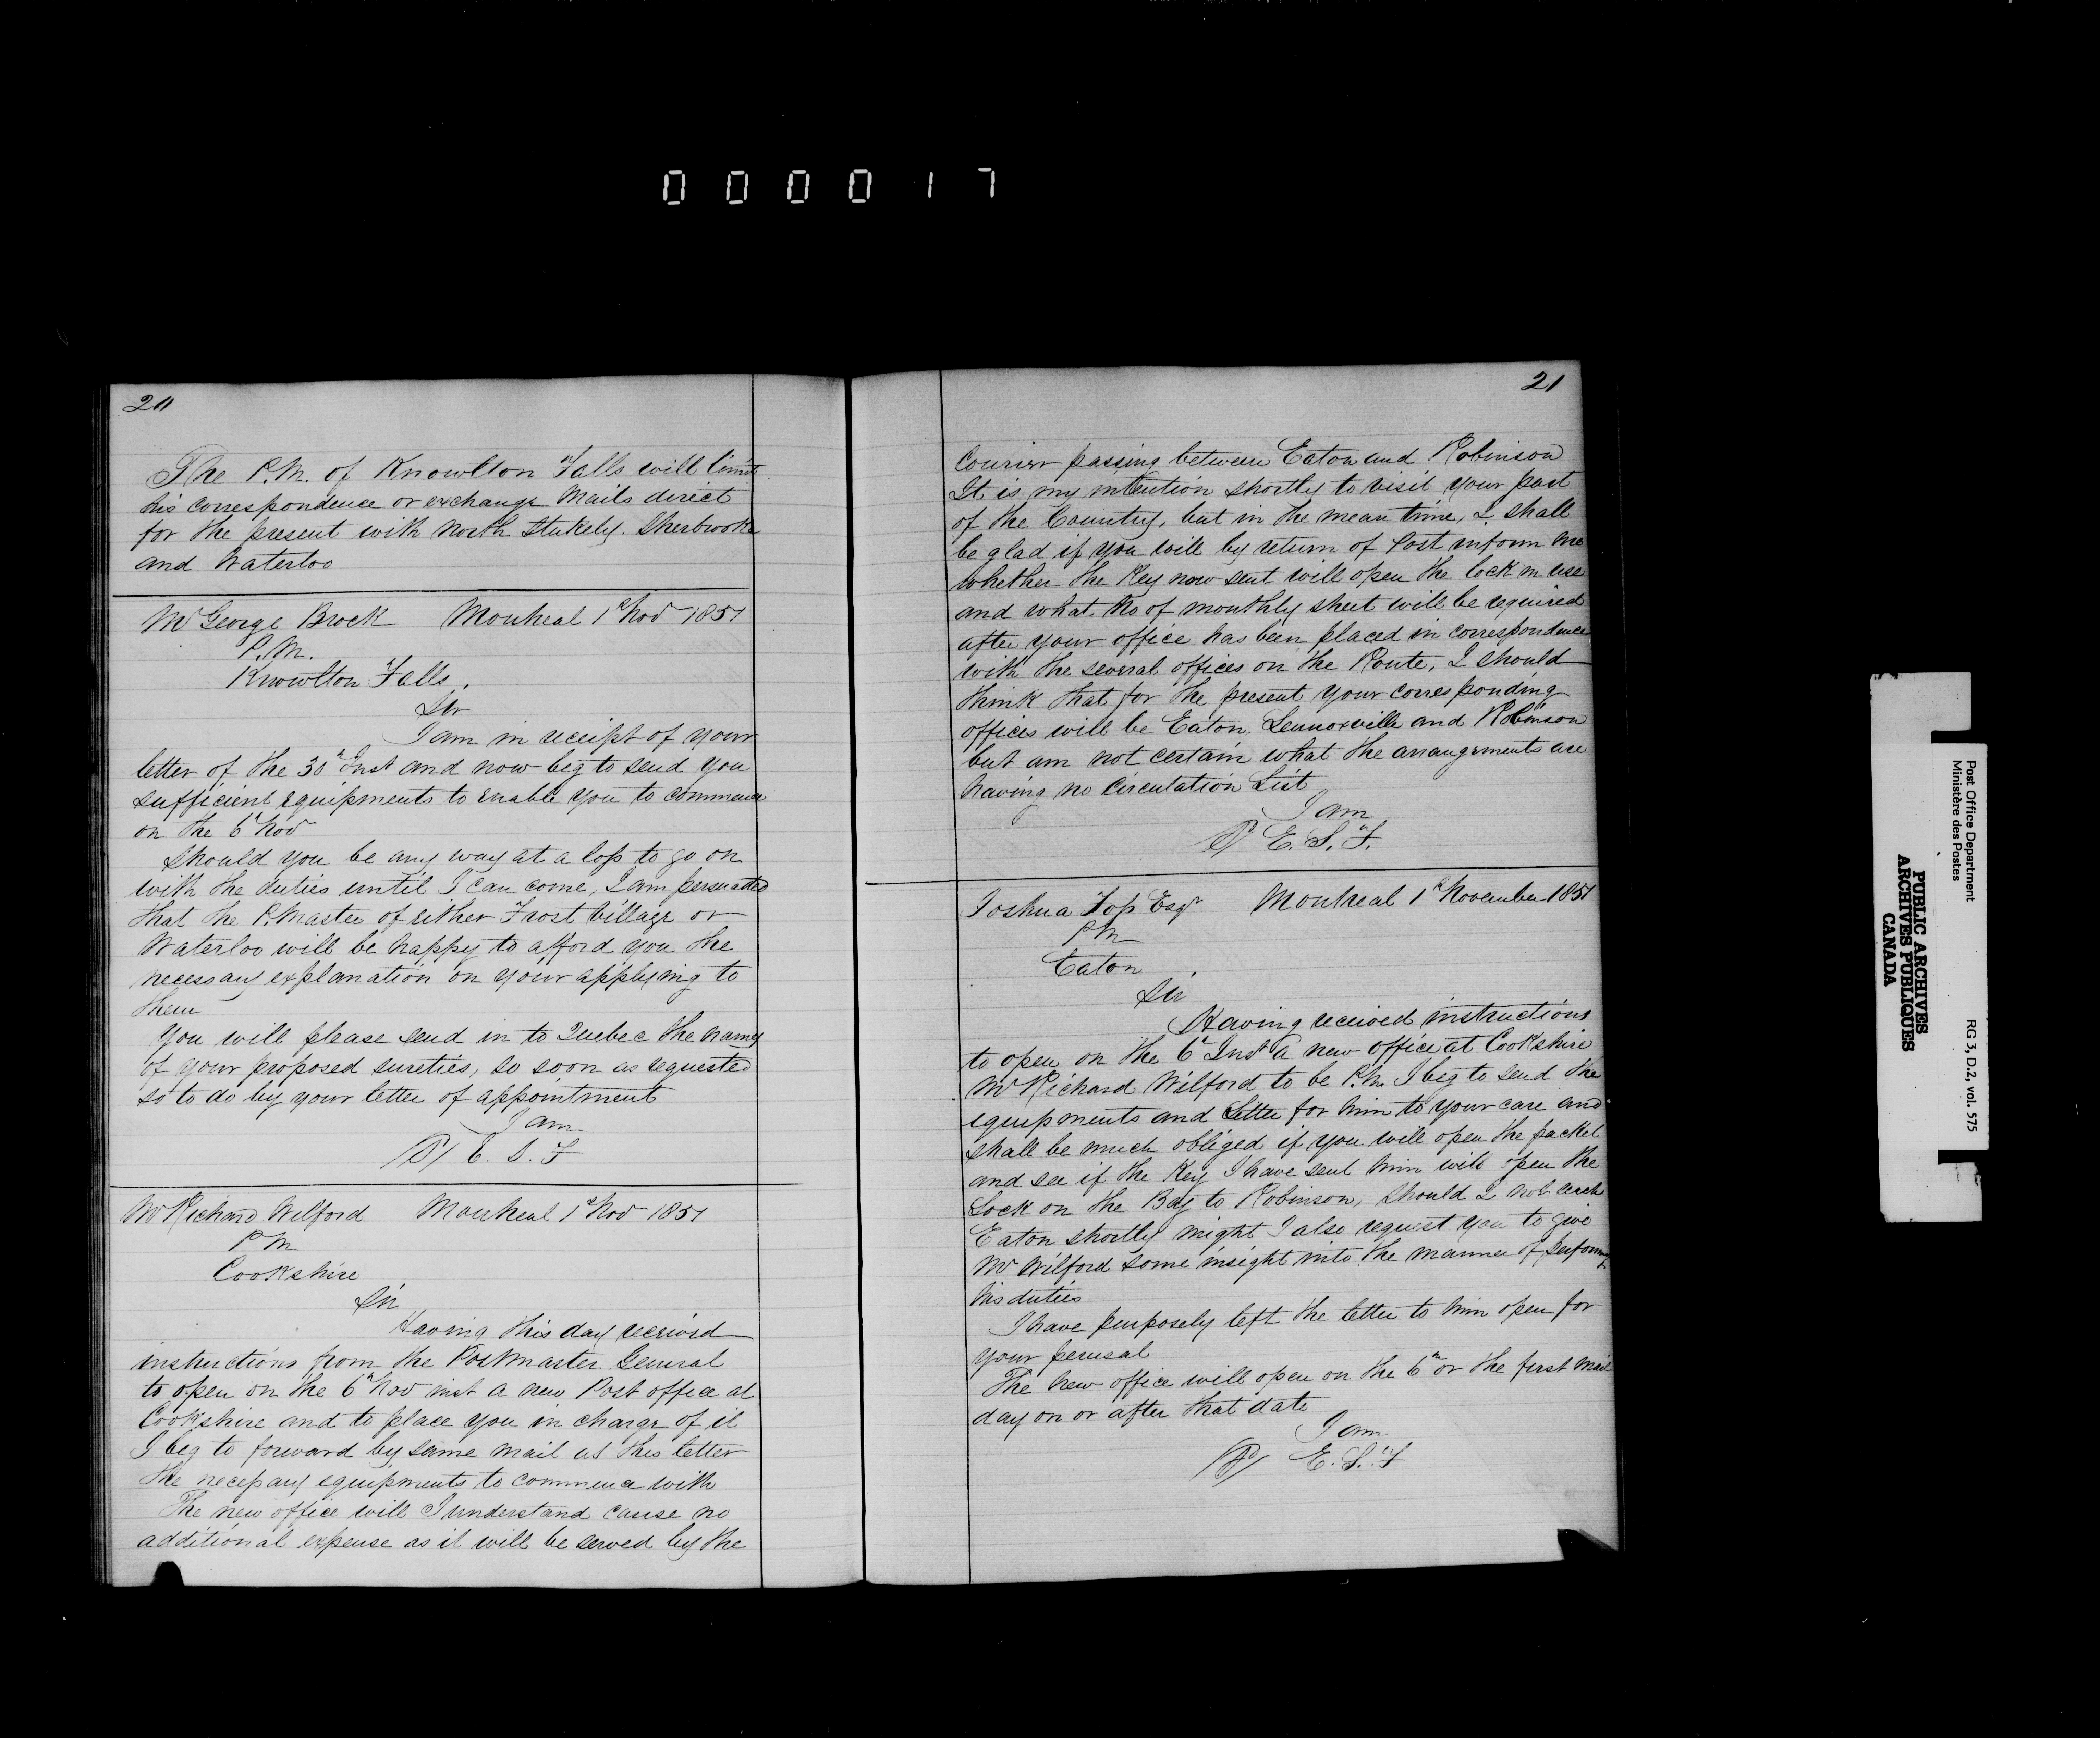 000017
20
The P.M. of Knowlton Falls will limit
his correspondence or exchange Mails direct
for the present with North Stukely. Sherbrooke
and Waterloo
Mr George Brock Montreal 1st Nov 1851
P.M.
Knowlton Falls.
Sir
I am in receipt of your
letter of the 30th Inst and now beg to send you
sufficient equipments to enable you to commence
on the 6th Nov
Should you be any way at a loss to go on
with the duties until I can come, I am persuaded
that the P.Master of either Frost Village or
Waterloo will be happy to afford you the
necessary explanation on your applying to
them
You will please send in to Quebec the names
of your proposed sureties, so soon as requested
so to do by your letter of appointment
I am
E. S. F
Mr Richard Wilford Montreal 1st Nov 1851
P M
Cookshire
Sir
Having this day received
instructions from the Postmaster General
to open on the 6th Nov inst a new Post office at
Cookshire and to place you in charge of it
I beg to forward by same mail as this letter
the necessary equipments to commence with
The new office will I understand cause no
additional expense as it will be served by the
21
Courier passing between Eaton and Robinson
It is my intention shortly to visit your part
of the Country, but in the mean time, I shall
be glad if you will by return of Post inform me
whether the Key now sent will open the lock in use
and what No of monthly sheet will be required
after your office has been placed in correspondence
with the several offices on the Route, I should
think that for the present your corresponding
offices will be Eaton, Lennoxville and Robinson
but am not certain what the arrangements are
having no Circulation List
I am
E. S. F.
Joshua Foss Esqr Montreal 1st November 1851
P M
Eaton
Sir
Having received instructions
to open on the 6th Inst a new office at Cookshire
Mr Richard Wilford to be P.M. I beg to send the
equipments and Letter for him to your care and
shall be much obliged if you will open the packet
and see if the Key I have sent him will open the
Lock on the Bag to Robinson, should I not reach
Eaton shortly might I also request you to give
Mr Wilford some insight into the manner of performing
his duties
I have purposely left the letter to him open for
your perusal
The new office will open on the 6th or the first mail
day on or after that date
I am
E. S. F
Post Office Department
Ministère des Postes
RG 3, D.2, vol. 575
PUBLIC ARCHIVES
ARCHIVES PUBLIQUES
CANADA